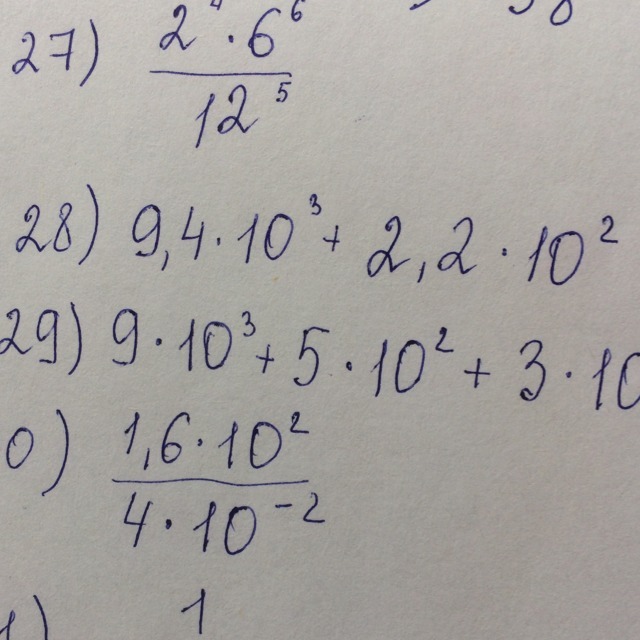 27) 2 · 6⁶
12⁵
28) 9,4 · 10³ + 2,2 · 10²
29) 9 · 10³ + 5 · 10² + 3 · 10
0) 1,6 · 10²
4 · 10⁻²
1) 1